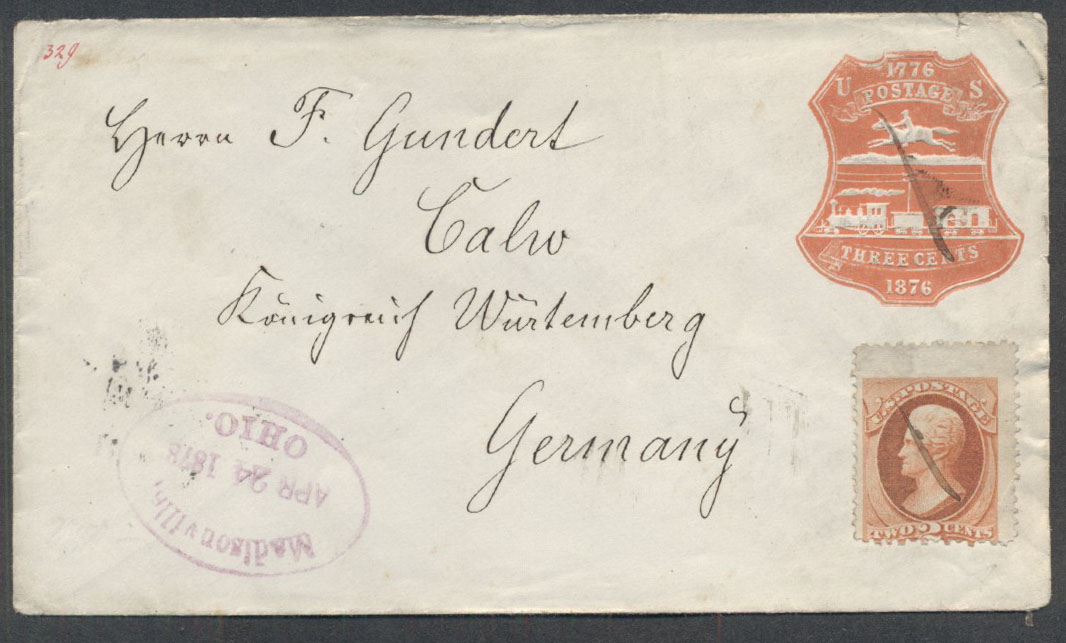 329
1776
U S
POSTAGE
THREE CENTS
1876
Herrn F. Gundert
Calw
Königreich Würtemberg
Germany
U.S. POSTAGE
TWO 2 CENTS
Madisonville,
APR 24 1878
OHIO.